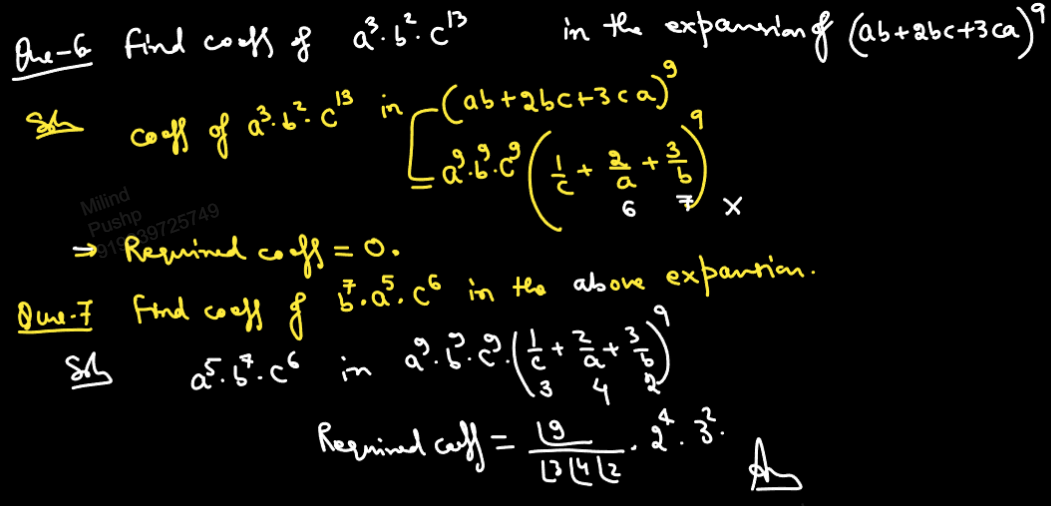 Que-6 Find coeff of a³·b²·c¹³ in the expansion of (ab+2bc+3ca)⁹
Soln coeff of a³·b²·c¹³ in (ab+2bc+3ca)⁹
= a⁹·b⁹·c⁹ (1/c + 2/a + 3/b)⁹
6 7 ×
Milind
Pushp
⇒ Required coeff = 0.
Que-7 Find coeff of b⁷·a⁵·c⁶ in the above expansion.
Soln a⁵·b⁷·c⁶ in a⁹·b⁹·c⁹·(1/c + 2/a + 3/b)⁹
3 4 2
Required coeff = ⌊9 / ⌊3 ⌊4 ⌊2 · 2⁴ · 3². Ans